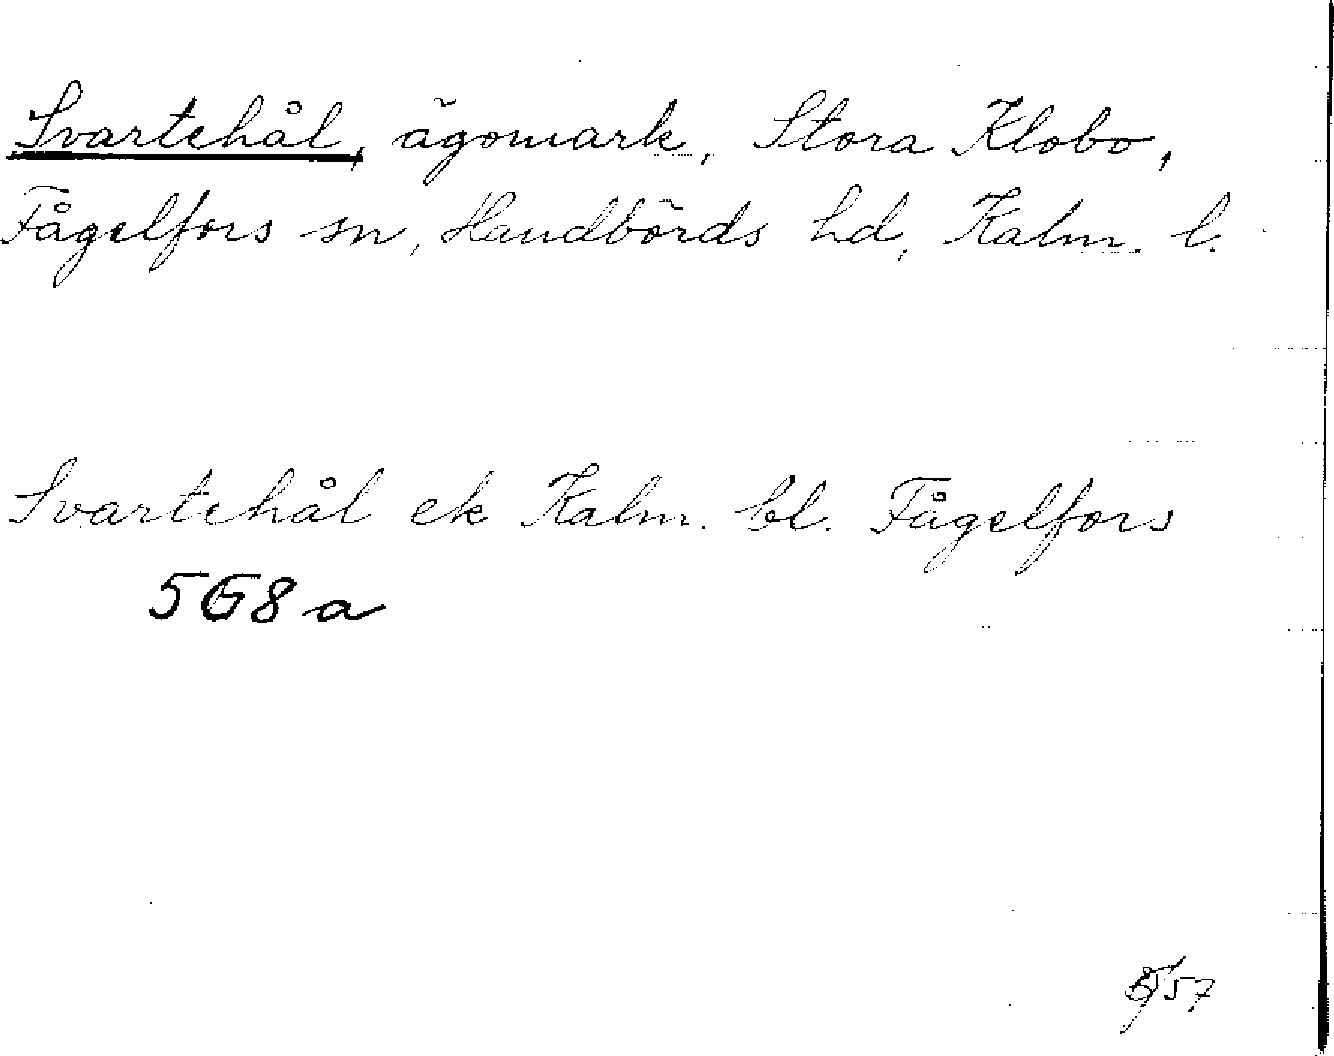 Svartehål, ägomark, Stora Klobo,
Fågelfors sn, Handbörds hd, Kalm. l.
Svartehål ek Kalm. bl. Fågelfors
5G8a
57